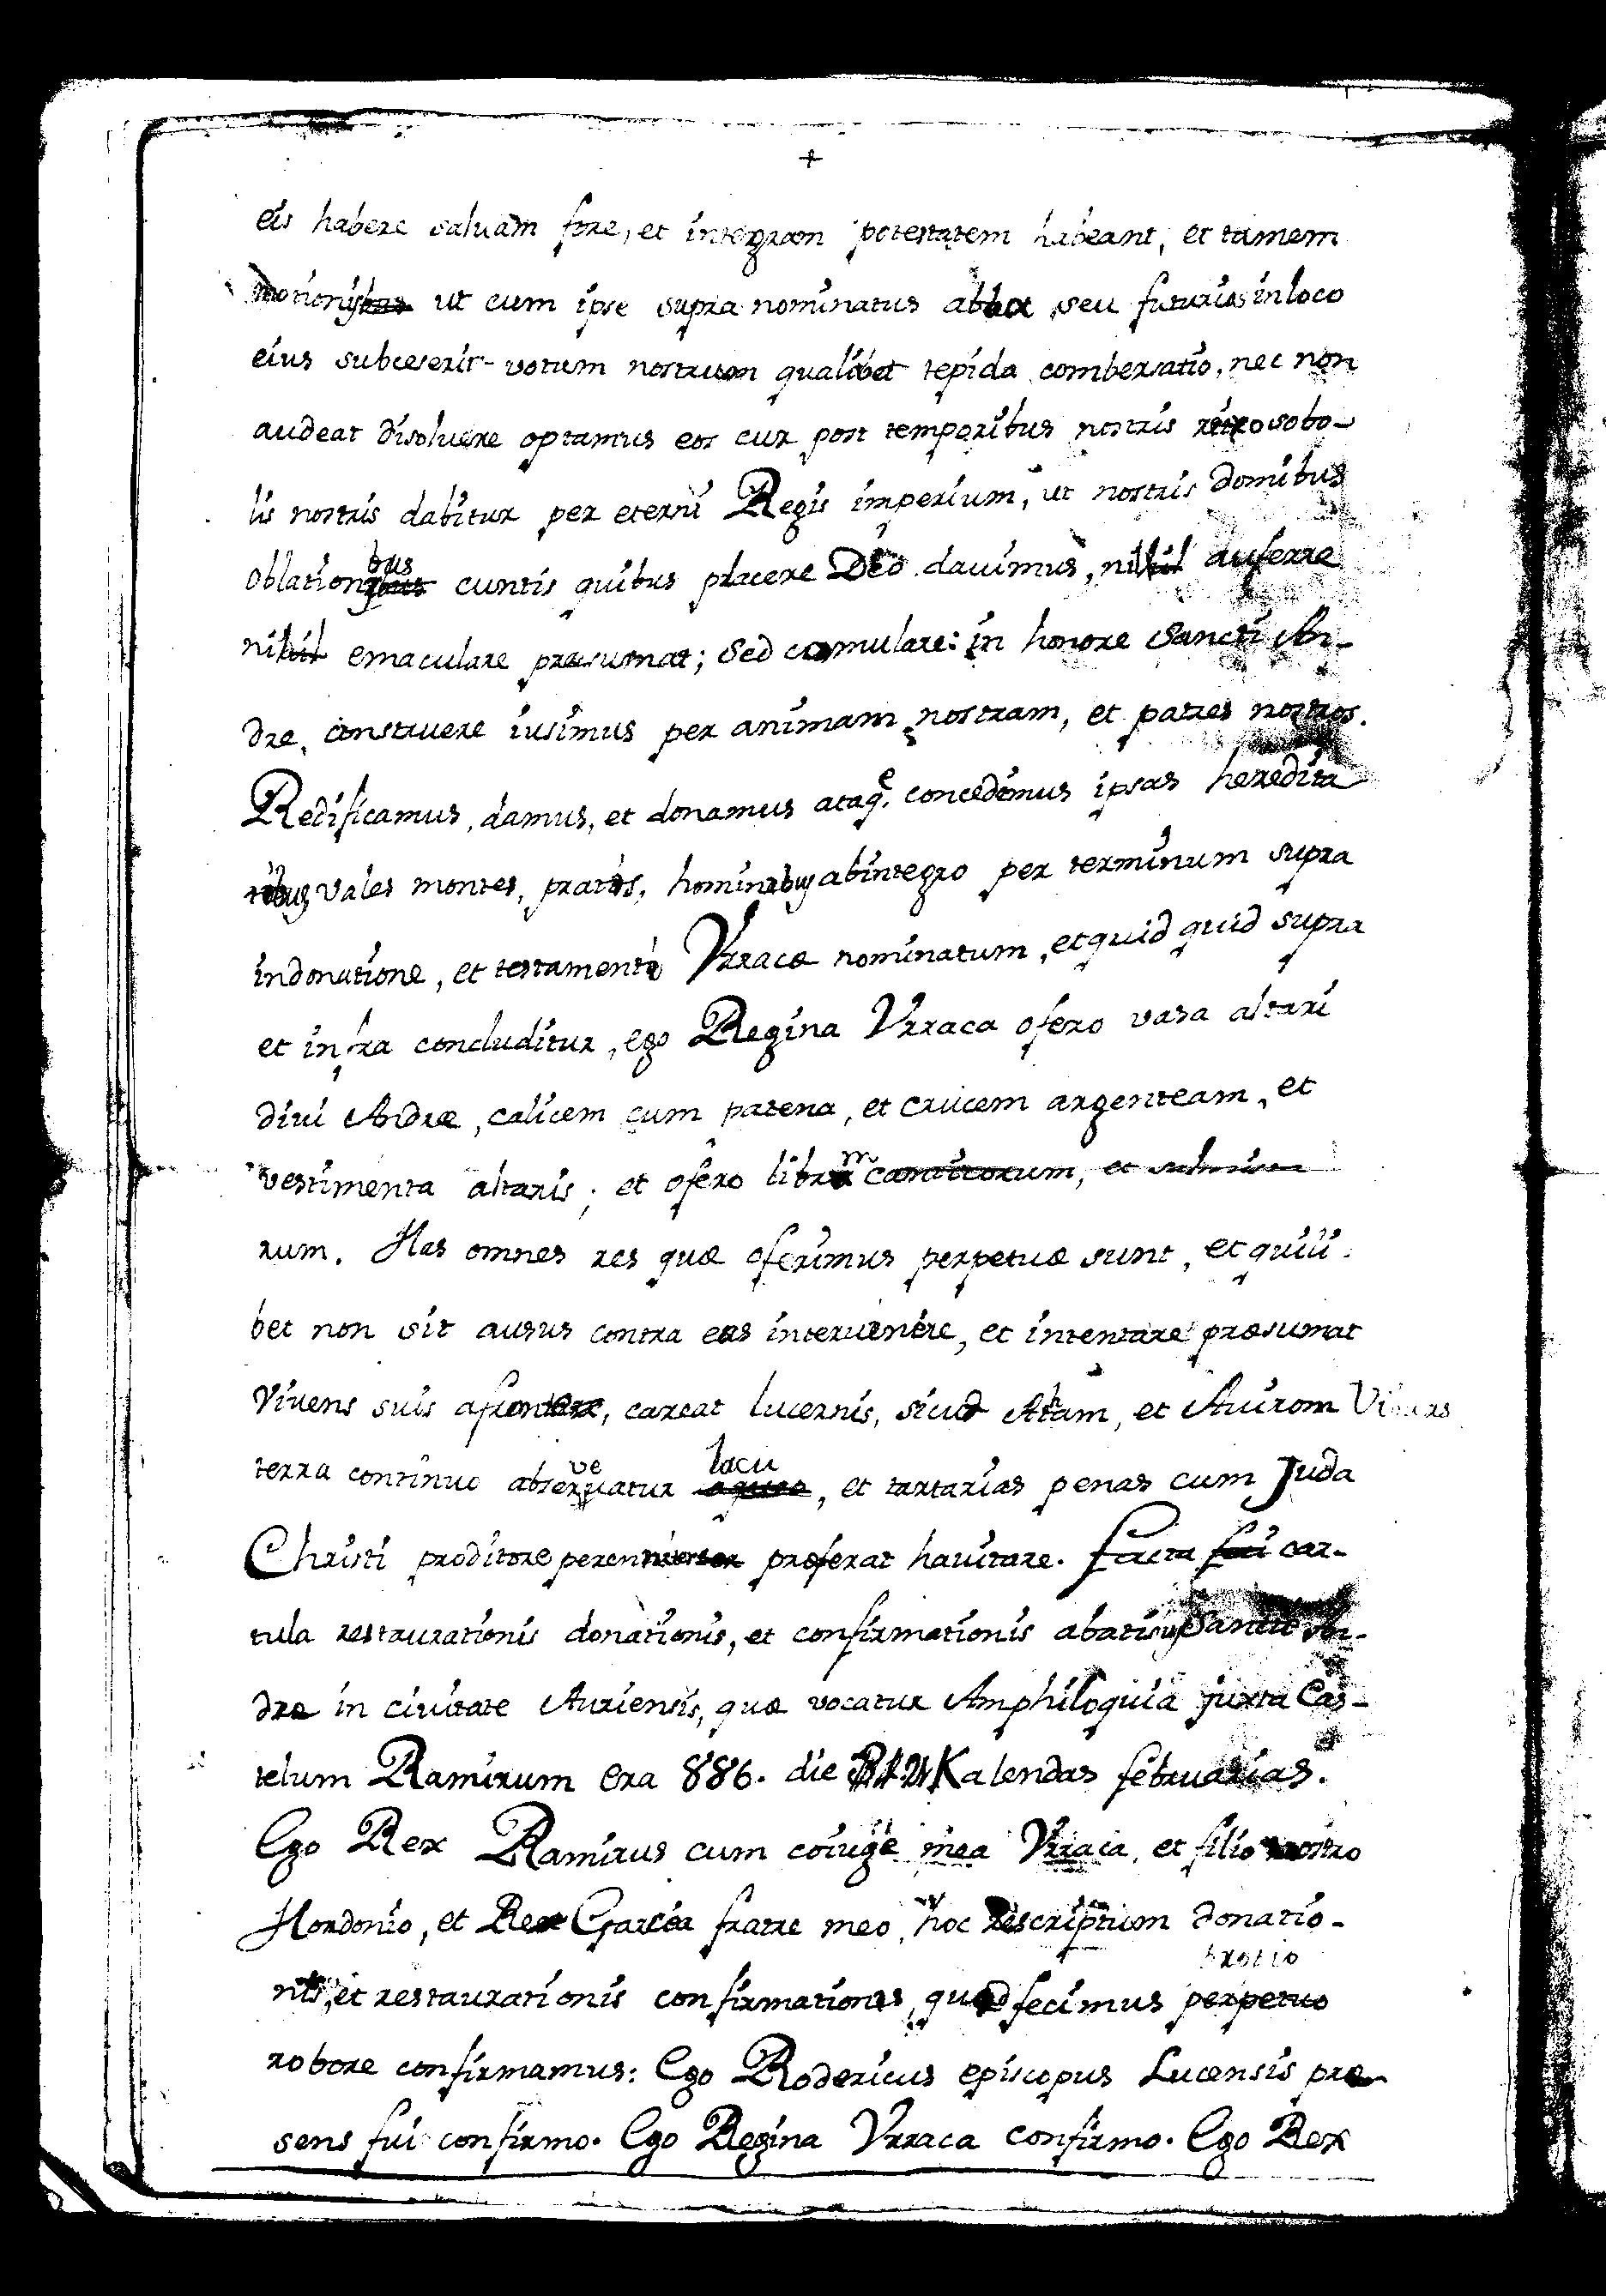 +
eis habere saluam fore, et integram potestatem habeant, et tamem
ut cum ipse supra nominatus abba seu futurus in loco
eius subceserit votum nostrum qualibet tepida combersatio, nec non
audeat disoluere optamus eos cur post temporibus nostris retro sobo-
lis nostris dabitur per eterni Regis imperium, ut nostris domibus
oblationibus cuntis quibus placere Deo davimus, nihil auferre
nihil emaculare præsumat; sed comulare: in honore Sancti An-
dre, construere iusimus per animam nostram, et patres nostros.
Redificamus, damus, et donamus ataq.e concedimus ipsas heredita
tibus vales montes, pratis, hominibus abintegro per terminum supra
indonatione, et testamento Vrracæ nominatum, et quid quid supra
et infra concluditur, ego Regina Vrraca ofero vasa altari
divi Andræ, calicem cum patena, et crucem argenteam, et
vestimenta altaris; et ofero librum canticorum, et
rum. Has omnes res quæ oferimus perpetuæ sunt, et quili-
bet non sit ausus contra eas intervenire, et intentare præsumat
Vivens suis a fronte, careat lucernis, sicud Atam, et Avirom
terra continuo abserveatur lacu, et tartarias penas cum Juda
Christi proditore proferat havitare. facta fui car-
tula restaurationis donationis, et confirmationis abatis Sancti An-
dræ in civitate Auriensis, quæ vocatur Amphiloquia juxta Cas-
telum Ramirum era 886. die Kalendas februarias.
Ego Rex Ramirus cum coiuge mea Vrraca, et filio nostro
Hordonio, et Rex Garcia fratre meo, hoc rescriptum donatio-
nis, et restaurationis confirmationis, quod fecimus perpetuo
robore confirmamus: Ego Rodericus episcopus Lucensis præ
sens fui confirmo. Ego Regina Vrraca confirmo. Ego Rex